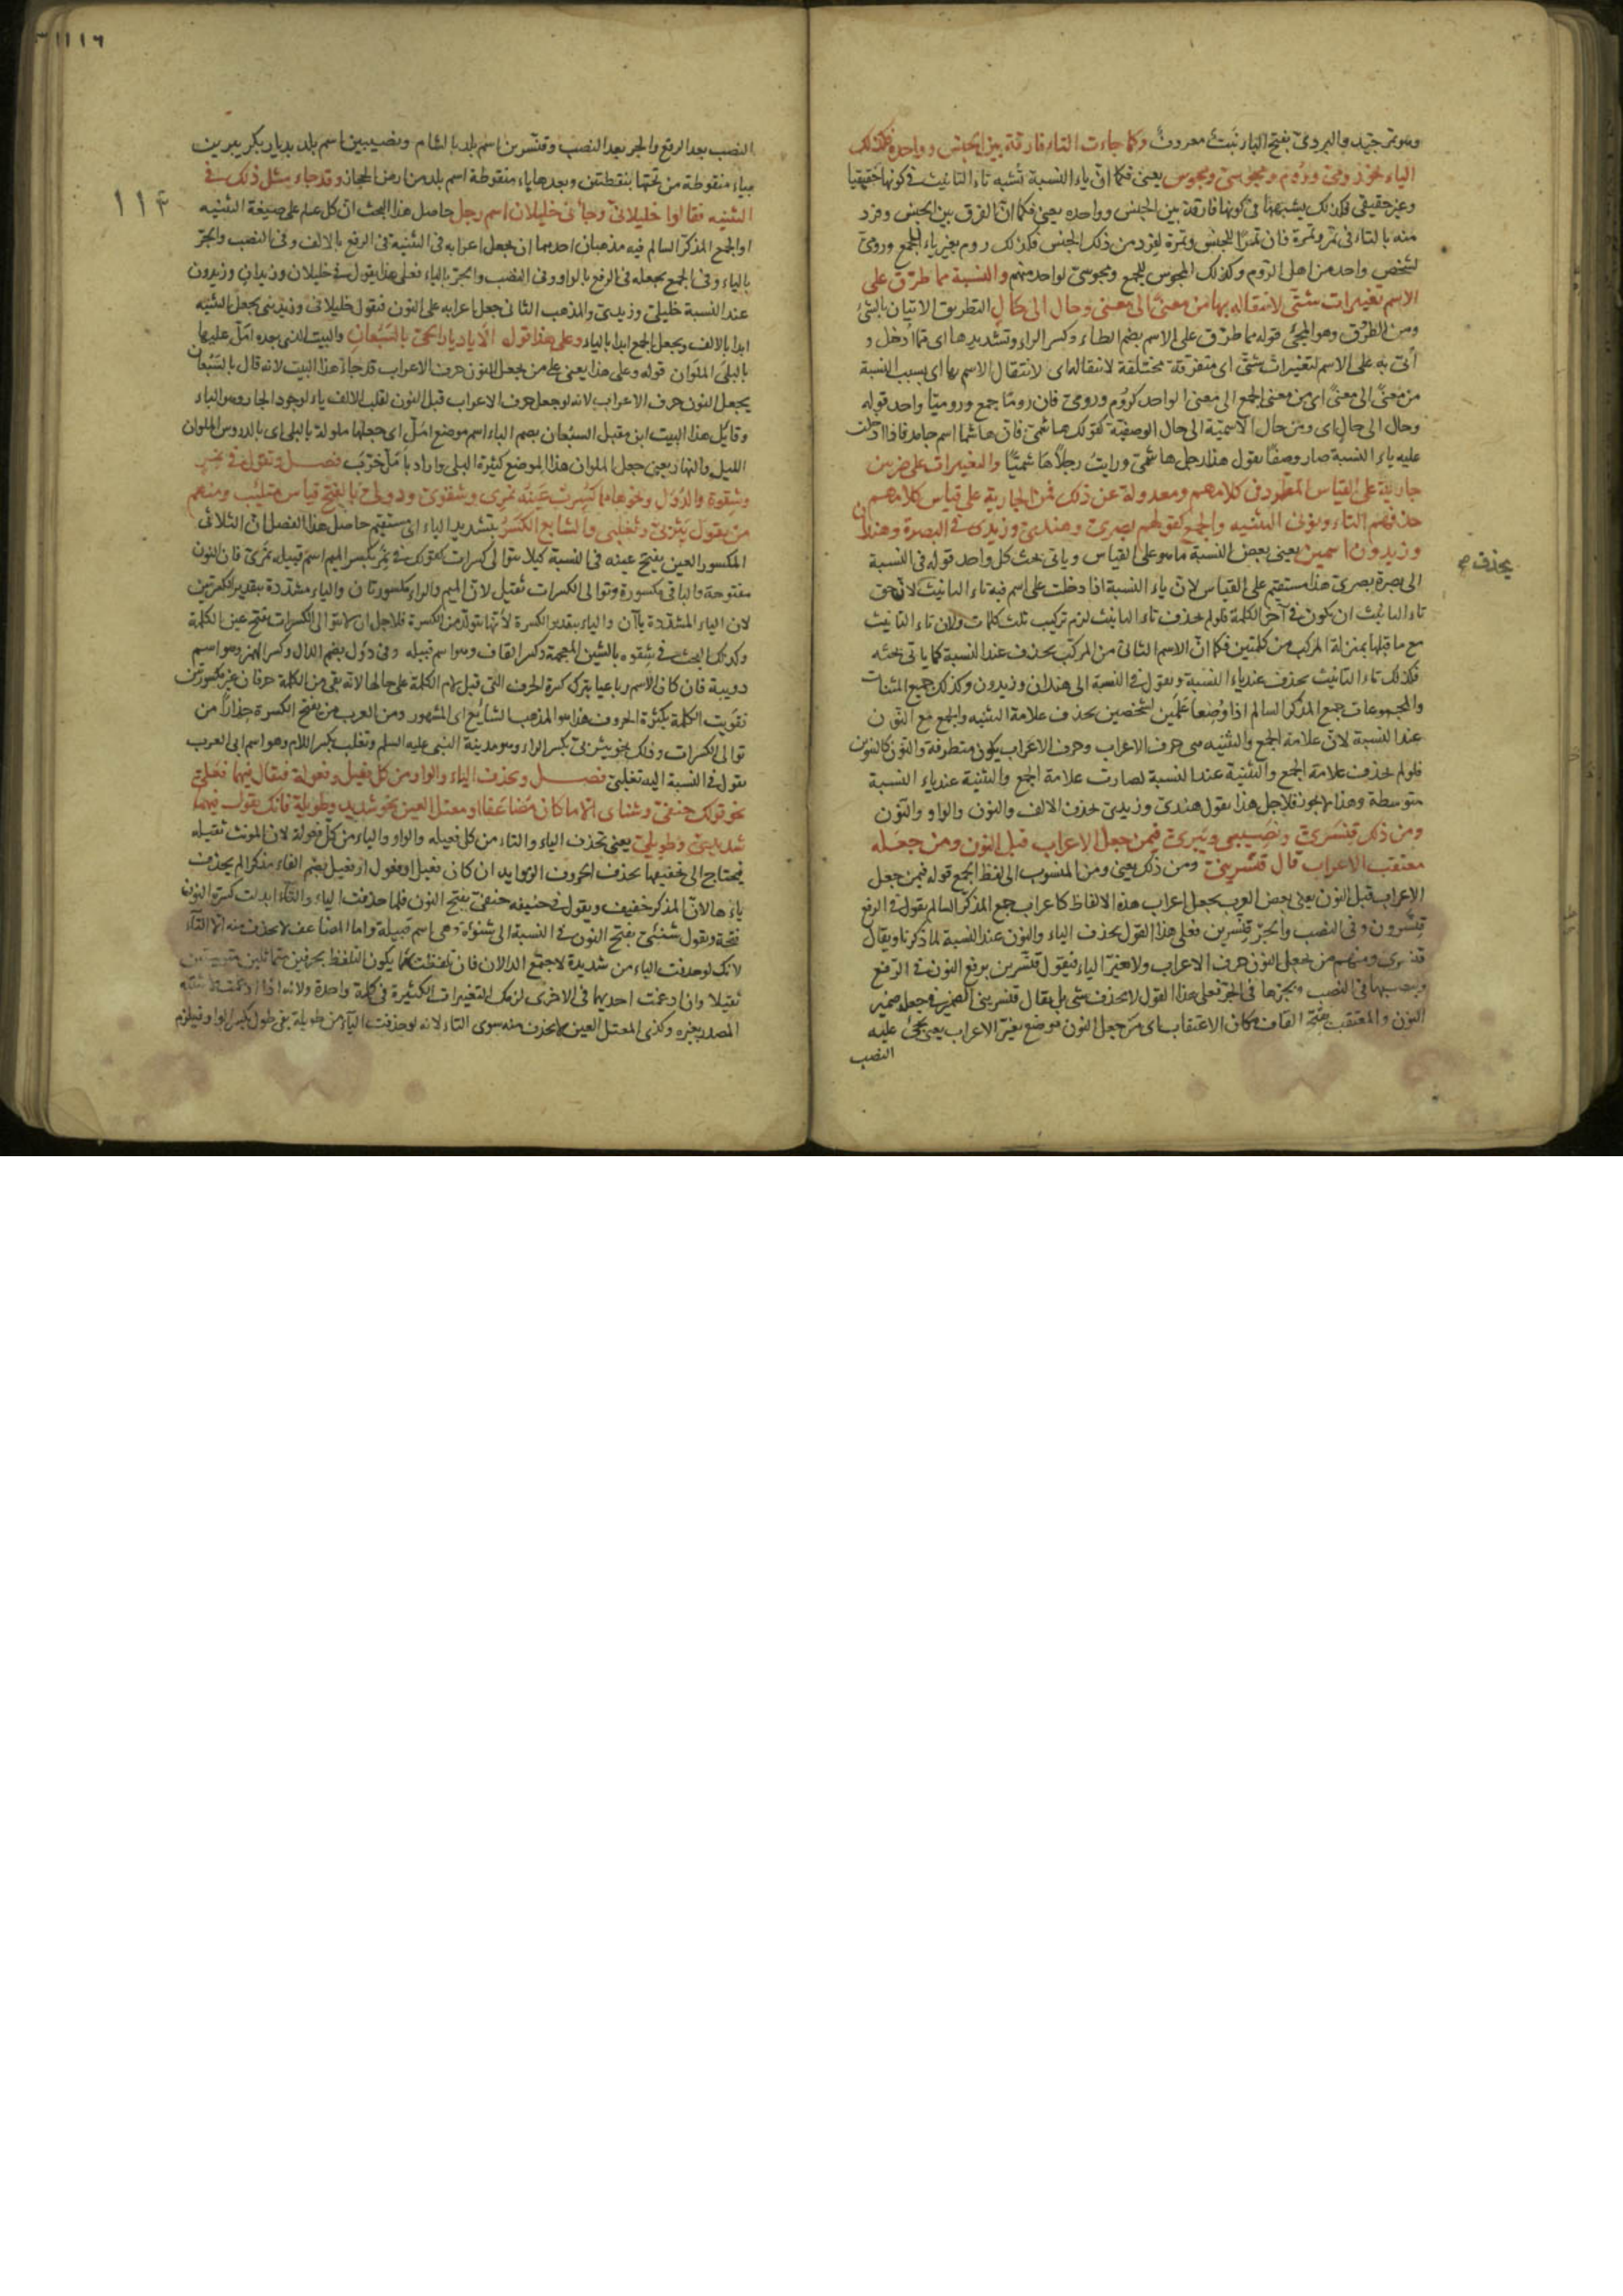 وهو تمر جيد والبردى بفتح الباء نبت معروف وكما جاءت التاء فارقة بين الجنس وواحده فكذلك
الياء نحو رومى وروم ومجوسى ومجوس يعنى فكما ان ياء النسبة تشبه تاء التانيث فى كونها حقيقيا
وغير حقيقى فكذلك يشبهها فى كونها فارقة بين الجنس وواحده يعنى فكما ان الفرق بين الجنس وفرد
منه بالتاء فى تمر وتمرة فان تمرا للجنس وتمرة لفرد من ذلك الجنس فكذلك روم بغير ياء للجمع ورومى
لشخص واحد من اهل الروم وكذلك المجوس للجمع ومجوسى لواحد منهم والنسبة مما طرق على
الاسم تغييرات شتى لانتقاله بها من معنى الى معنى وحال الى حال التطريق الاتيان بالشئ
ومن الطرق وهو المجئ قوله مما طرق على الاسم بضم الطاء وكسر الراء وتشديدها اى مما أدخل و
أتى به على الاسم لتغييرات شتى اى متفرقة مختلفة لانتقاله اى لانتقال الاسم بها اى بسبب النسبة
من معنى الى معنى اى من معنى الجمع الى معنى الواحد كروم ورومى فان روما جمع وروميا واحد قوله
وحال الى حال اى ومن حال الاسمية الى حال الوصفية كقولك هاشمى فان هاشما اسم جامد فاذا ادخلت
عليه ياء النسبة صار وصفا تقول هذا رجل هاشمى ورايت رجلا هاشميا والتغييرات على ضربين
جارية على القياس المطرد فى كلامهم ومعدولة عن ذلك فمن الجارية على قياس كلامهم
حذفهم التاء ونونى التثنيه والجمع كقولهم بصرى وهندى وزيدى فى البصرة وهندان
وزيدون اسمين يعنى بعض النسبة ما هو على القياس وياتى بحث كل واحد قوله فى النسبة
يحذف
الى بصرة بصرى هذا مستقيم على القياس لان ياء النسبة اذا دخلت على اسم فيه تاء التانيث لان حق
تاء التانيث ان يكون فى آخر الكلمة فلو لم يحذف تاء التانيث لزم تركيب ثلث كلمات ولان تاء التانيث
مع ما قبلها بمنزلة المركب من كلمتين فكما ان الاسم الثانى من المركب يحذف عند النسبة كما ياتى بحثه
فكذلك تاء التانيث يحذف عند ياء النسبة وتقول فى النسبة الى هندان وزيدون وكذلك جميع المثنات
والمجموعات جمع المذكر السالم اذا وضعا علمين لشخصين يحذف علامة التثنيه والجمع مع النون
عند النسبة لان علامة الجمع والتثنيه هى حرف الاعراب وحرف الاعراب يكون متطرفة والنون كالتنوين
فلو لم يحذف علامة الجمع والتثنية عند النسبة لصارت علامة الجمع والتثنية عند ياء النسبة
متوسطة وهذا لا يجوز فلاجل هذا تقول هندى وزيدى بحذف الالف والنون والواو والنون
ومن ذلك قنسرى ونصيبى ويبرى فيمن جعل الاعراب قبل النون ومن جعله
معتقب الاعراب قال قنسرينى ومن ذلك يعنى ومن المنسوب الى لفظ الجمع قوله فيمن جعل
الاعراب قبل النون يعنى بعض العرب يجعل اعراب هذه الالفاظ كاعراب جمع المذكر السالم يقول فى الرفع
قنسرون وفى النصب والجر قنسرين فعلى هذا القول يحذف الياء والنون عند النسبة لما ذكرنا ويقال
قنسرى ومنهم من يجعل النون حرف الاعراب ولا يغير الياء فيقول قنسرين برفع النون فى الرفع
وبنصبها فى النصب وبجرها فى الجر فعلى هذا القول لا يحذف شئ بل يقال قنسرينى الضمير فى جعله ضمير
النون والمعتقب بفتح القاف مكان الاعتقاب اى من جعل النون موضع تغير الاعراب يعنى يجئ عليه
النصب
١١٤
النصب بعد الرفع والجر بعد النصب وقنسرين اسم بلد بالشام ونصيبين اسم بلد بديار بكر يبرين
بياء منقوطة من تحتها بنقطتين وبعدها باء منقوطة اسم بلد من ارض الحجاز وقد جاء مثل ذلك فى
التثنيه فقالوا خليلانى وجاءنى خليلان اسم رجل حاصل هذا البحث ان كل علم على صيغة التثنيه
او الجمع المذكر السالم فيه مذهبان احدهما ان يجعل اعرابه فى التثنية فى الرفع بالالف وفى النصب والجر
بالياء وفى الجمع يجعله فى الرفع بالواو وفى النصب والجر بالياء فعلى هذا يقول فى خليلان وزيدان وزيدون
عند النسبة خليلى وزيدى والمذهب الثانى جعل اعرابه على النون فتقول خليلانى وزيدينى يجعل التثنيه
ابدا بالالف ويجعل الجمع ابدا بالياء وعلى هذا قوله الا يا ديار الحى بالسبعان والبيت الذى بعده امل عليها
بالبلى الملوان قوله وعلى هذا يعنى على من يجعل النون حرف الاعراب قد جاء هذا البيت لانه قال بالسبعان
يجعل النون حرف الاعراب لانه لو جعل حرف الاعراب قبل النون لقلب الالف ياء لوجود الجار وهو الباء
وقائل هذا البيت ابن مقبل السبعان بضم الباء اسم موضع امل اى جعلها ملولة بالبلى اى بالدروس الملوان
الليل والنهار يعنى جعل الملوان هذا الموضع كثيرة البلى واراد بامل خرب فصل وتقول فى نمر
وشقرة والدؤل ونحوها مما كسرت عينه نمرى وشقرى ودؤلى بالفتح قياس متلئب ومنهم
من يقول يثربى وتغلبى والشايع الكسر بتشديد الياء اى مستقيم حاصل هذا الفصل ان الثلاثى
المكسور العين يفتح عينه فى النسبة كيلا يتوالى كسرات كقولك فى نمر بكسر الميم اسم قبيله نمرى فان النون
مفتوحة والباقى مكسورة وتوالى الكسرات ثقيل لان الميم والراء مكسورتان والياء مشددة بتقدير الكسرتين
لان الياء المشددة ياآن والياء بتقدير الكسرة لانها يتولد من الكسرة فلاجل ان لا يتوالى الكسرات يفتح عين الكلمة
وكذلك البحث فى شقره بالشين المعجمة وكسر القاف وهو اسم قبيله وفى دؤل بضم الدال وكسر الهمزه وهو اسم
دويبة فان كان الاسم رباعيا يترك كسرة الحرف التى قبل لام الكلمة على حالها لانه بقى من الكلمة حرفان غير مكسورتين
تقويت الكلمة بكثرة الحروف هذا هو المذهب الشايع اى المشهور ومن العرب من يفتح الكسرة حذارا من
توالى الكسرات وذلك نحو يثربى بكسر الراء وهو مدينة النبى عليه السلم وتغلب بكسر اللام وهو اسم ابى العرب
يقول فى النسبة اليه تغلبى فصل ويحذف الياء والواو من كل فعيل وفعولة فيقال فيهما فعلى
نحو قولك حنفى وشنئى الا ما كان مضاعفا او معتل العين نحو شديد وطويلة فانك تقول فيهما
شديدى وطويلى يعنى يحذف الياء والتاء من كل فعيله والواو والياء من كل فعولة لان المونث ثقيله
فيحتاج الى تخفيفها بحذف الحروف الزوايد ان كان فعيل او فعول او فعيل بضم الفاء مذكرا لم يحذف
ياءها لان المذكر خفيف ويقول فى حنيفه حنفى بفتح النون فلما حذفت الياء والتاء ابدلت كسرة النون
فتحة ويقول شنئى بفتح النون فى النسبة الى شنوءة وهى اسم قبيلة واما المضاعف لا يحذف منه الا التاء
لانك لو حذفت الياء من شديدة لاجتمع الدالان فان تلفظت بهما يكون التلفظ بحرفين متماثلين
ثقيلا وان ادغمت احديهما فى الاخرى لزمك التغييرات الكثيرة فى كلمة واحدة ولانه اذا ادغمت
المصدر بغيره وكذى المعتل العين لا يحذف منه سوى التاء لانه لو حذفت الياء من طويلة بقى طول بكسر الواو فيلزم